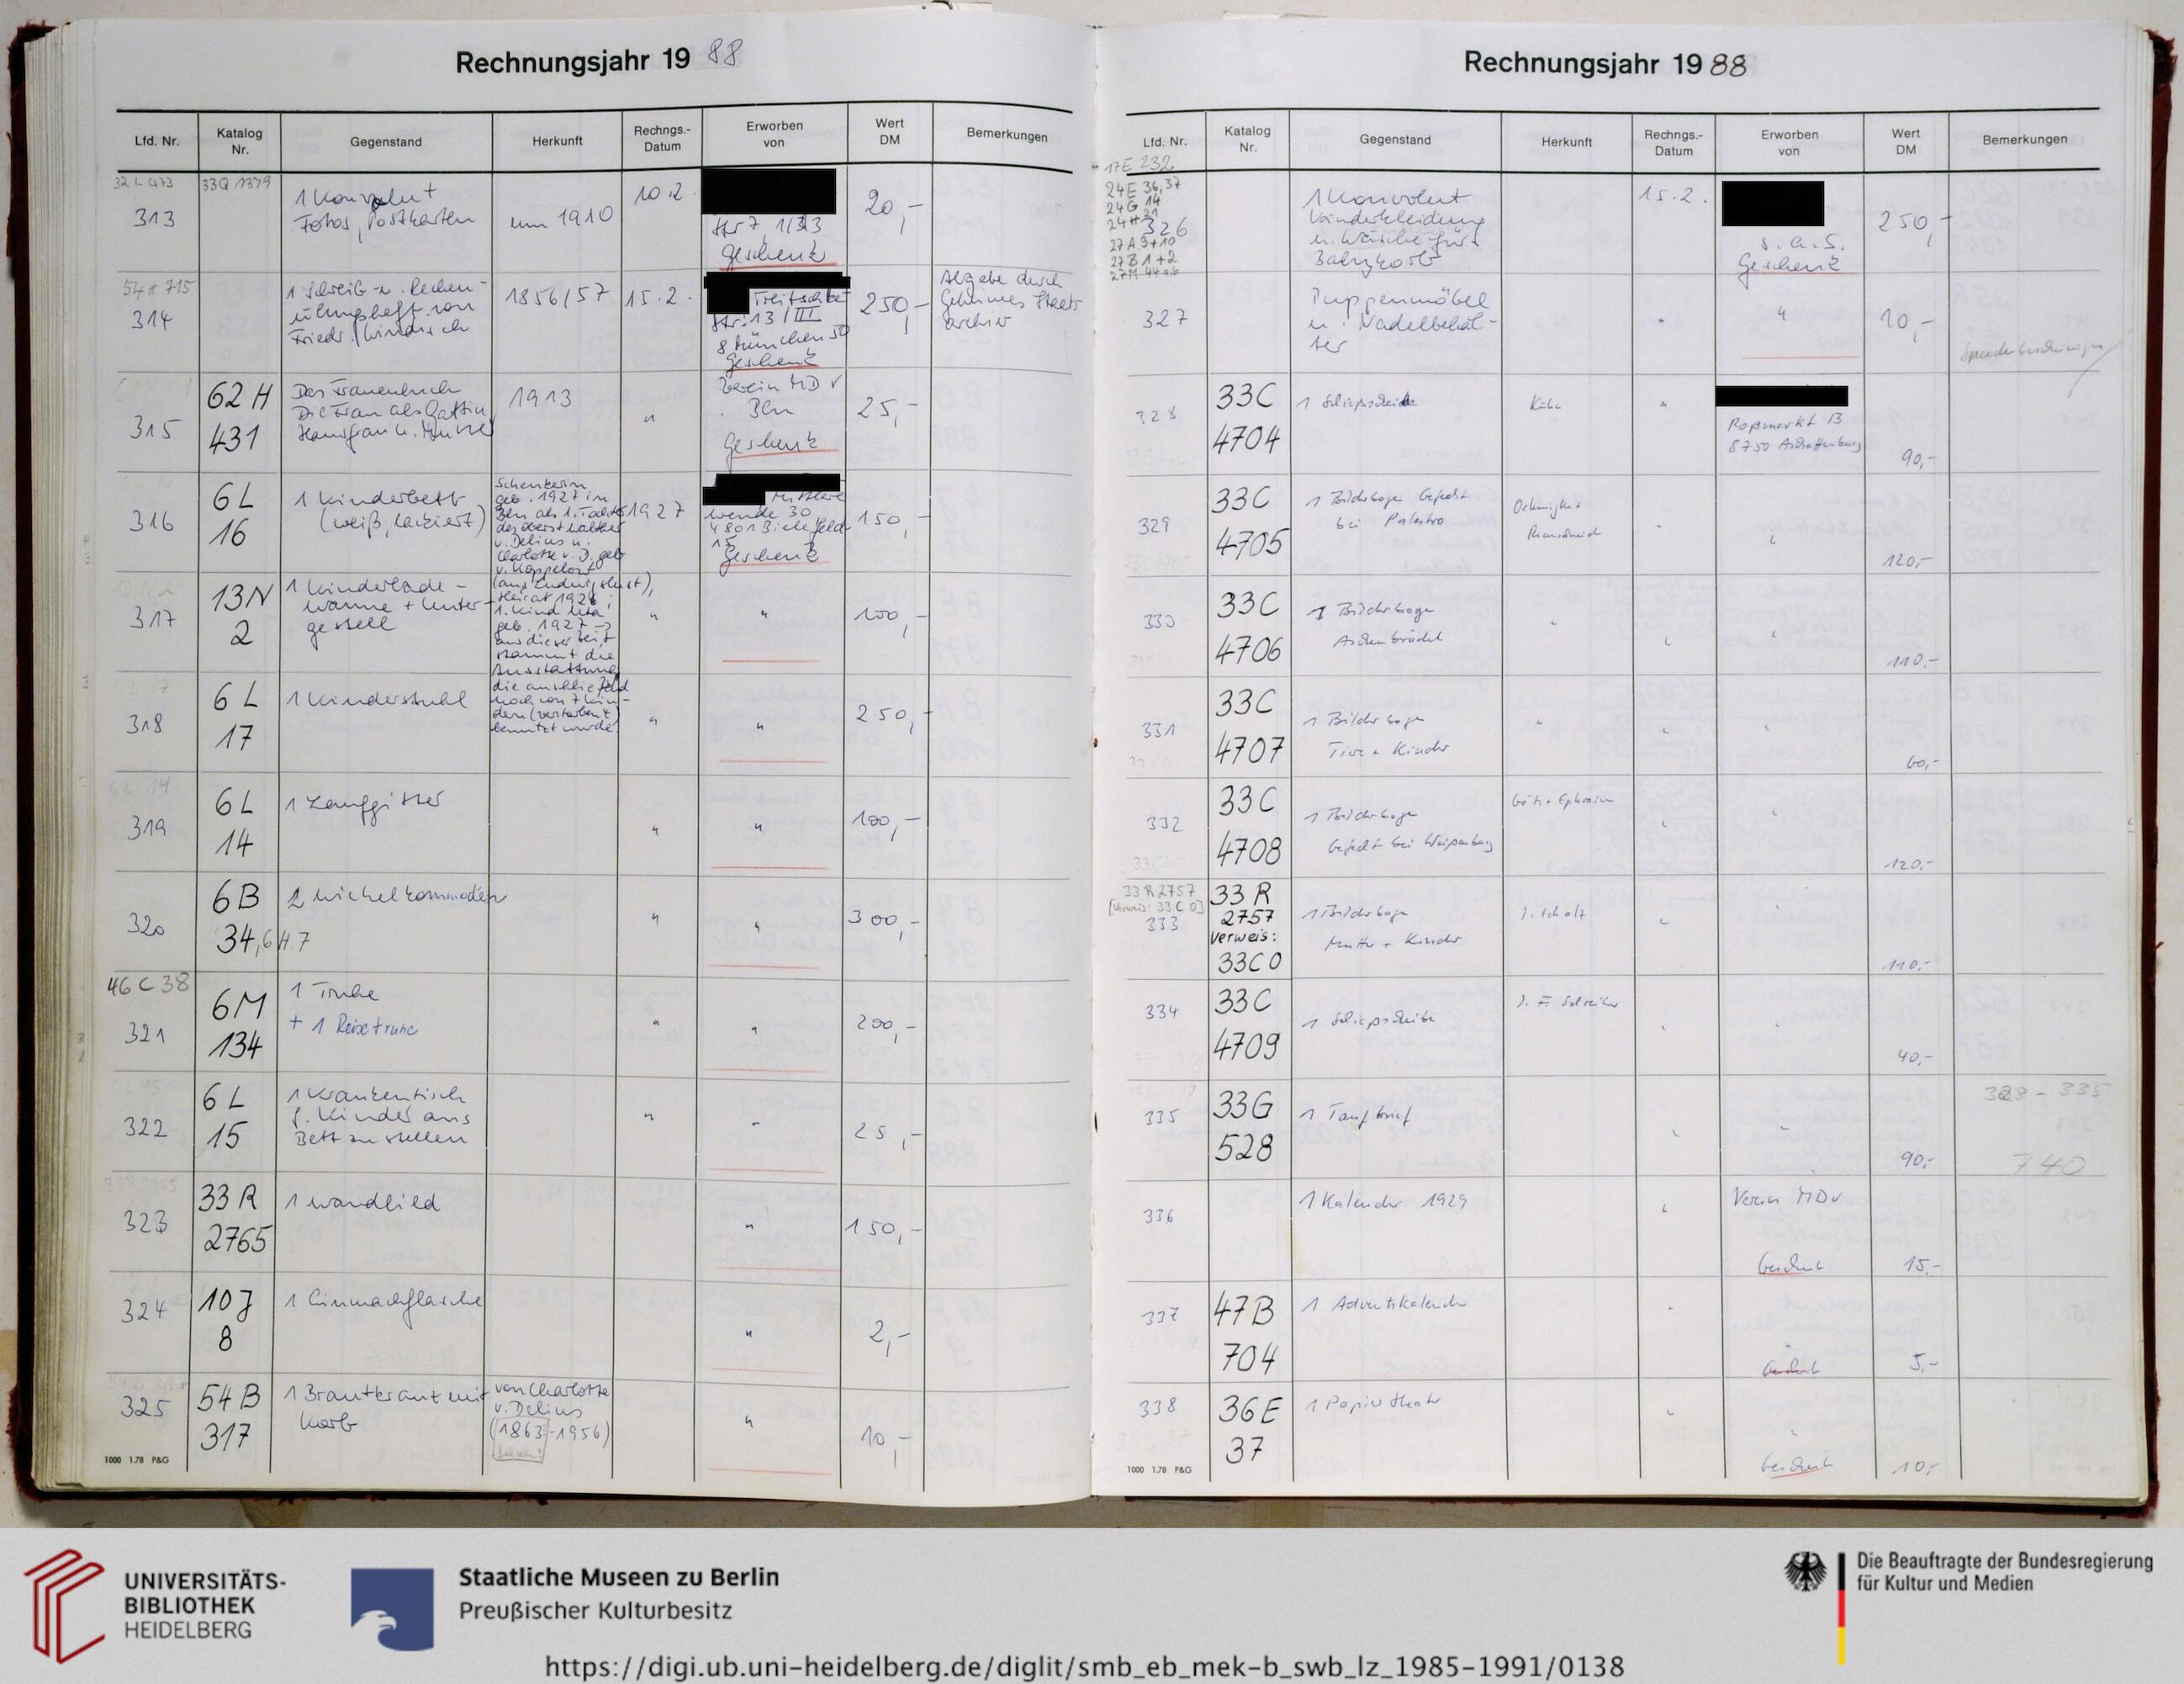 Rechnungsjahr 19 88
Lfd. Nr. Katalog Nr. Gegenstand Herkunft Rechngs.-Datum Erworben von Wert DM Bemerkungen
32 L 473 33Q 1379
313 1 Konvolut Fotos, Postkarten um 1910 10.2. Str 7, 1/33 Geschenk 20,-
54 715
314 1 Schreib- u. Rechen-
übungsheft von
Friedr. 1856/57 15.2. Treitschke
Str. 13/III
8 München 50
Geschenk 250,- Abgabe durch
Geheimes Staats
archiv
315 62 H 431 Das Frauenbuch
Die Frau als Gattin
Hausfrau u. Mutter 1913 " Verein MDV
Bln
Geschenk 25,-
316 6 L 16 1 Kinderbett
(weiß, lackiert) Schenkerin
geb. 1927 in
Bln als 1. Tochter
des Oberst Walther
v. Delius u.
Charlotte v. D. geb.
v. 1927 Mittlere
wende 30
4801 Bielefeld
15
Geschenk 150,-
317 13 N 2 1 Kinderbade-
wanne + Unter-
gestell (aus Ludwigslust),
Heirat 1926;
1. Kind
geb. 1927 →
aus dieser Zeit
stammt die
Ausstattung " " 100,-
318 6 L 17 1 Kinderstuhl die anschließend
noch von 7 Kin-
dern
benutzt wurde " " 250,-
319 6 L 14 1 Laufgitter " " 100,-
320 6 B 34, 6 H 7 2 Wickelkommoden " " 300,-
46 C 38
321 6 M 134 1 Truhe
+ 1 Reisetruhe " " 200,-
322 6 L 15 1 Krankentisch
f. Kinder ans
Bett zu stellen " " 25,-
323 33 R 2765 1 Wandbild " 150,-
324 10 J 8 1 Einmachflasche " 2,-
325 54 B 317 1 Brautkranz mit
Korb von Charlotte
v. Delius
(1863-1956)
falsch! " 10,-
1000 1.78 P&G
Rechnungsjahr 19 88
Lfd. Nr. Katalog Nr. Gegenstand Herkunft Rechngs.-Datum Erworben von Wert DM Bemerkungen
17E 232
24E 36,37
24G 14
24H 21
27A 9+10
27B 1+2
27M 44 a,b
326 1 Konvolut
Kinderkleidung
u. Wäsche für
Babykorb 15.2. s.a.S.
Geschenk 250,-
327 Puppenmöbel
u. Nadelbehäl-
ter " " 10,- Spendenbescheinigung
328 33C 4704 1 Schießscheibe Kühn " Roßmarkt 13
8750 Aschaffenburg 90,-
329 33C 4705 1 Bilderbogen Gefecht
bei Palestro Oehmigke +
Riemschneid " " 120,-
330 33C 4706 1 Bilderbogen
Aschenbrödel " " " 110.-
331 33C 4707 1 Bilderbogen
Tiere + Kinder " " " 60,-
332 33C 4708 1 Bilderbogen
Gefecht bei Weißenburg " " 120.-
33 R 2757
[Verweis: 33 C 0]
333 33 R 2757 Verweis: 33C 0 1 Bilderbogen
Mutter + Kinder J. Scholz " " 110.-
334 33C 4709 1 Schießscheibe J. F. Schreiber " " 40,-
335 33G 528 1 Taufbrief " " 90,- 328 - 335
740
336 1 Kalender 1929 " Verein MDV
Geschenk 15.-
337 47B 704 1 Adventskalender " "
Geschenk 5,-
338 36E 37 1 Papiertheater " "
Geschenk 10,-
1000 1.78 P&G
UNIVERSITÄTS-
BIBLIOTHEK
HEIDELBERG
Staatliche Museen zu Berlin
Preußischer Kulturbesitz
Die Beauftragte der Bundesregierung
für Kultur und Medien
https://digi.ub.uni-heidelberg.de/diglit/smb_eb_mek-b_swb_lz_1985-1991/0138